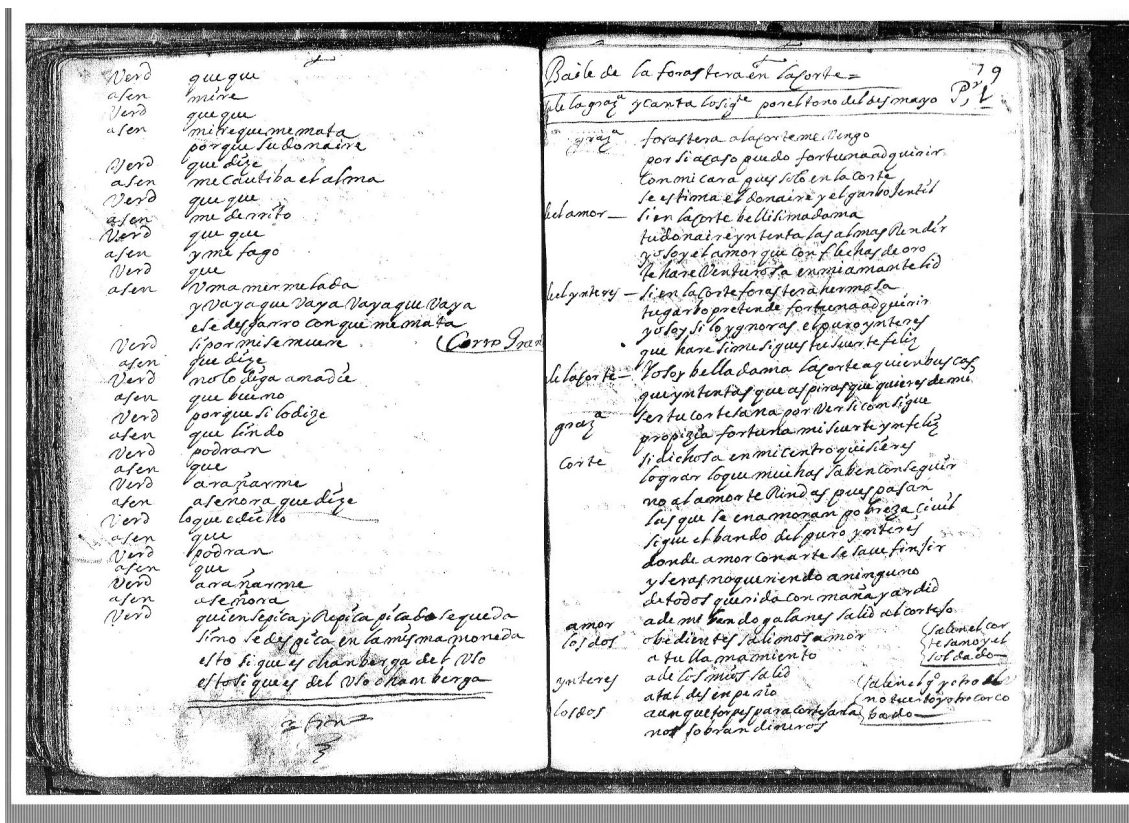 Verd que que
asen mire
Verd que que
asen mire que me mata
porque su donaire
Verd que dize
asen me cautiba el alma
Verd que que
asen me derrito
Verd que que
asen y me fago
Verd que
asen Vma mermelada
y Vaya que Vaya Vaya que Vaya
ese desgarro con que me mata
Verd si por mi se muere
asen que dize
Verd no lo diga a nadie
asen que bueno
Verd porque si lo dize
asen que lindo
Verd podran
asen que
Verd arañarme
asen a señora que dize
Verd lo que e dicho
asen que
Verd podran
asen que
Verd arañarme
asen a señora
Verd quien se pica y Repica picado se queda
si no se despica en la misma moneda
esto si que es chanberga del Vso
esto si que es del Vso chanberga
fin
79
Baile de la forastera en la corte =
le la graz.ª y canta lo sig.te por el tono del desmayo
graz.ª forastera a la corte me Vengo
por si acaso puedo fortuna adquirir
con mi cara pues solo en la corte
se estima el donaire y el garbo jentil
el amor — si en la corte bellisima dama
tu donaire yntenta las almas Rendir
yo soy el amor que con flechas de oro
te hare Venturosa en mi amante lid
el ynteres — si en la corte forastera hermosa
tu garbo pretende fortuna adquirir
yo soy si lo ygnoras el puro ynteres
que hare si me sigues tu suerte feliz
le la corte — Yo soy bella dama la corte a quien buscas
que yntentas que aspiras que quieres de mi
graz.ª ser tu cortesana por Ver si consigue
propizia fortuna mi suerte ynfeliz
corte si dichosa en mi centro quisieres
lograr lo que muchas saben conseguir
no al amor te Rindas pues pasan
las que se enamoran pobreza ciuil
sigue el bando del puro ynteres
donde amor con arte se saue finjir
y seras no queriendo a ninguno
de todos querida con maña y ardid
amor a de mi bando galanes salid al corteso
los dos obedientes salimos amor
a tu llamamiento
salen el cor
tesano y el
soldado —
ynteres a de los mios salid
a tal desenpeño
los dos aunque torpes para cortesana
nos sobran dineros
bado —